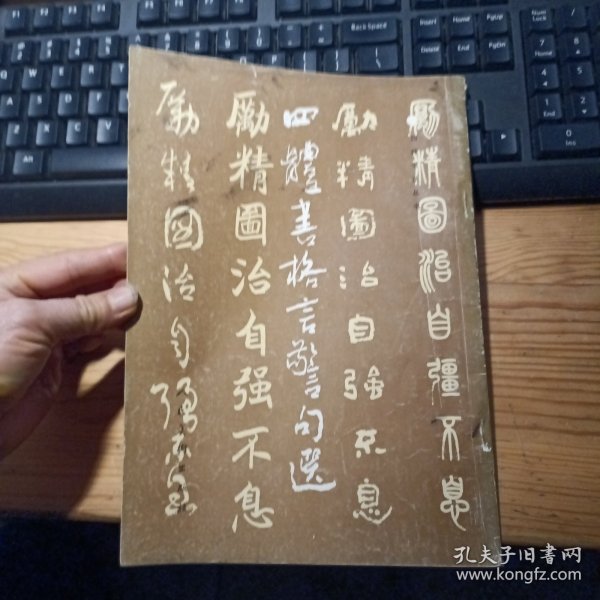 勵精圖治自彊不息
勵精圖治自強不息
四體書格言警句選
勵精圖治自强不息
勵精圖治自強不息
孔夫子旧书网
www.kongfz.com